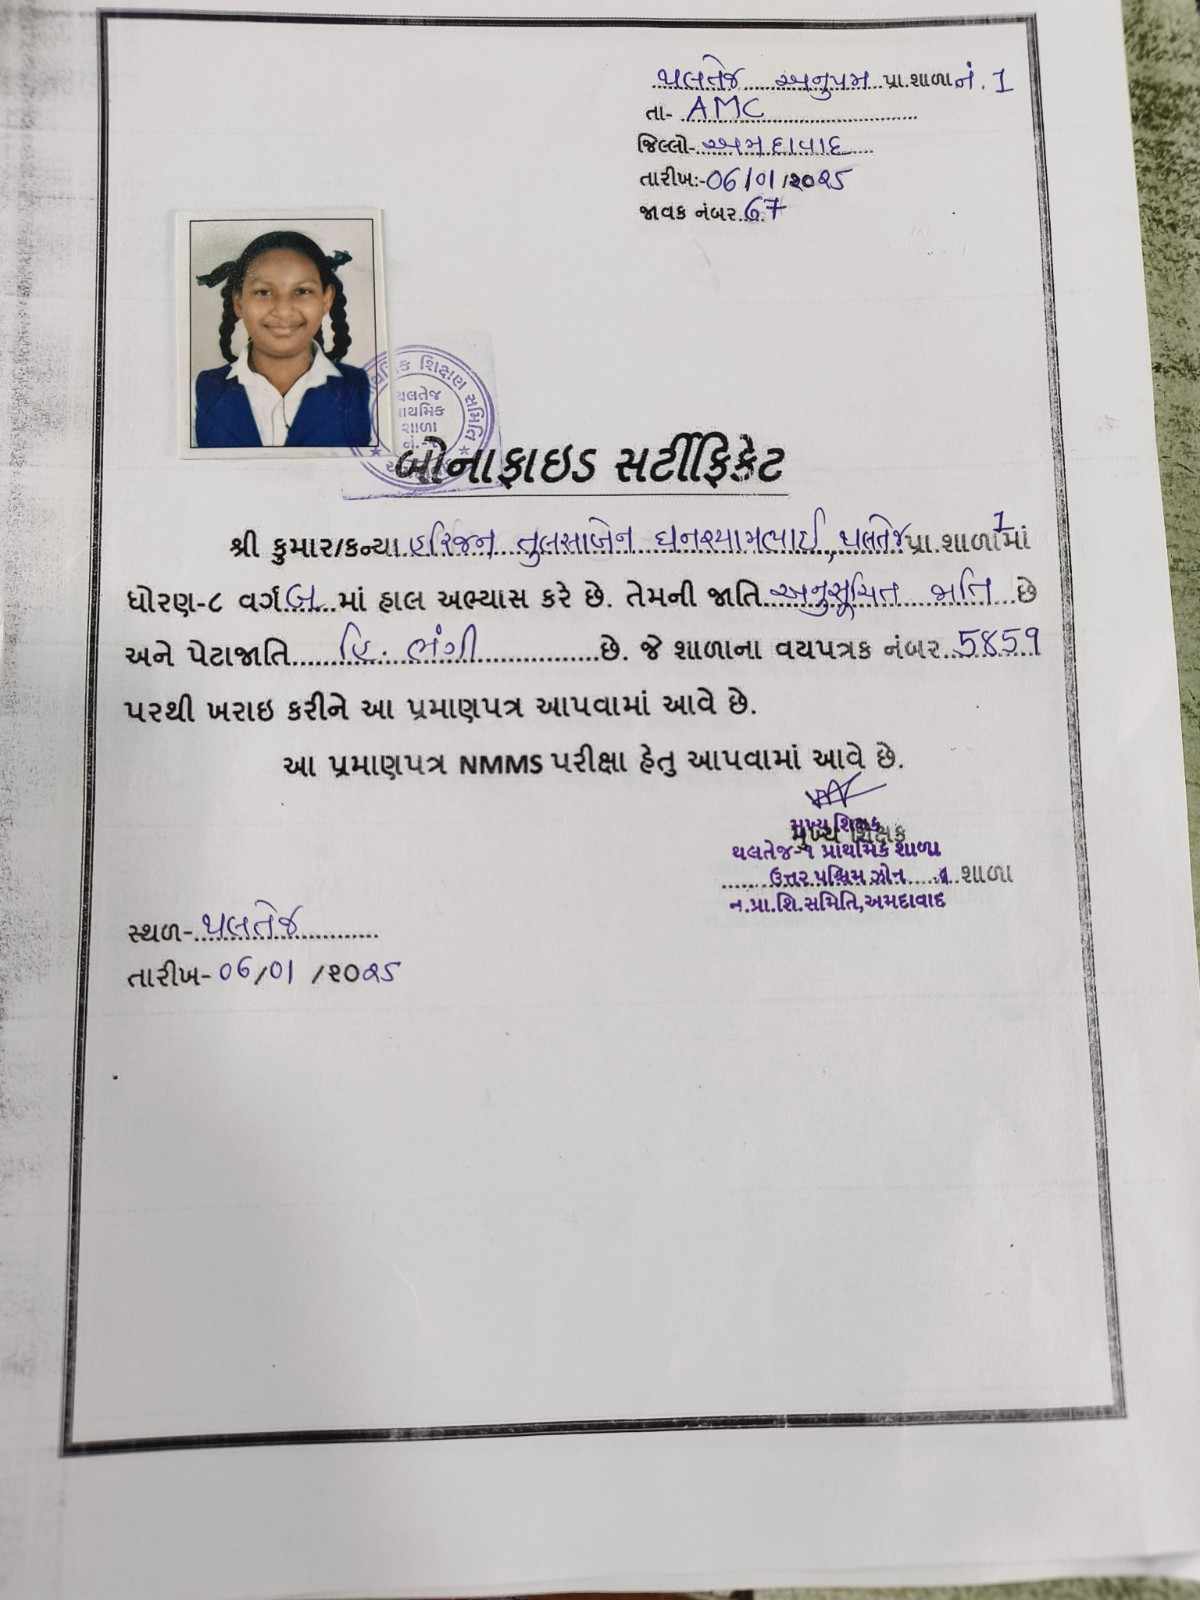 થલતેજ અનુપમ પ્રા.શાળા નં. 1
તા- AMC
જિલ્લો- અમદાવાદ
તારીખ:- 06/01/૨૦૨5
જાવક નંબર 67
શિક્ષણ સમિતિ
થલતેજ
પ્રાથમિક
શાળા
બોનાફાઇડ સર્ટીફિકેટ
શ્રી કુમાર/કન્યા હરિજન તુલસાબેન ઘનશ્યામભાઈ, થલતેજ પ્રા.શાળા 1 માં
ધોરણ-૮ વર્ગ બ માં હાલ અભ્યાસ કરે છે. તેમની જાતિ અનુસૂચિત જાતિ છે
અને પેટાજાતિ હિ. ભંગી છે. જે શાળાના વયપત્રક નંબર 5859
પરથી ખરાઇ કરીને આ પ્રમાણપત્ર આપવામાં આવે છે.
આ પ્રમાણપત્ર NMMS પરીક્ષા હેતુ આપવામાં આવે છે.
મુખ્ય શિક્ષક
મુખ્ય શિક્ષક
થલતેજ-૧ પ્રાથમિક શાળા
ઉત્તર પશ્ચિમ ઝોન શાળા
ન.પ્રા.શિ.સમિતિ,અમદાવાદ
સ્થળ- થલતેજ
તારીખ- 06/01 /૨૦૨5